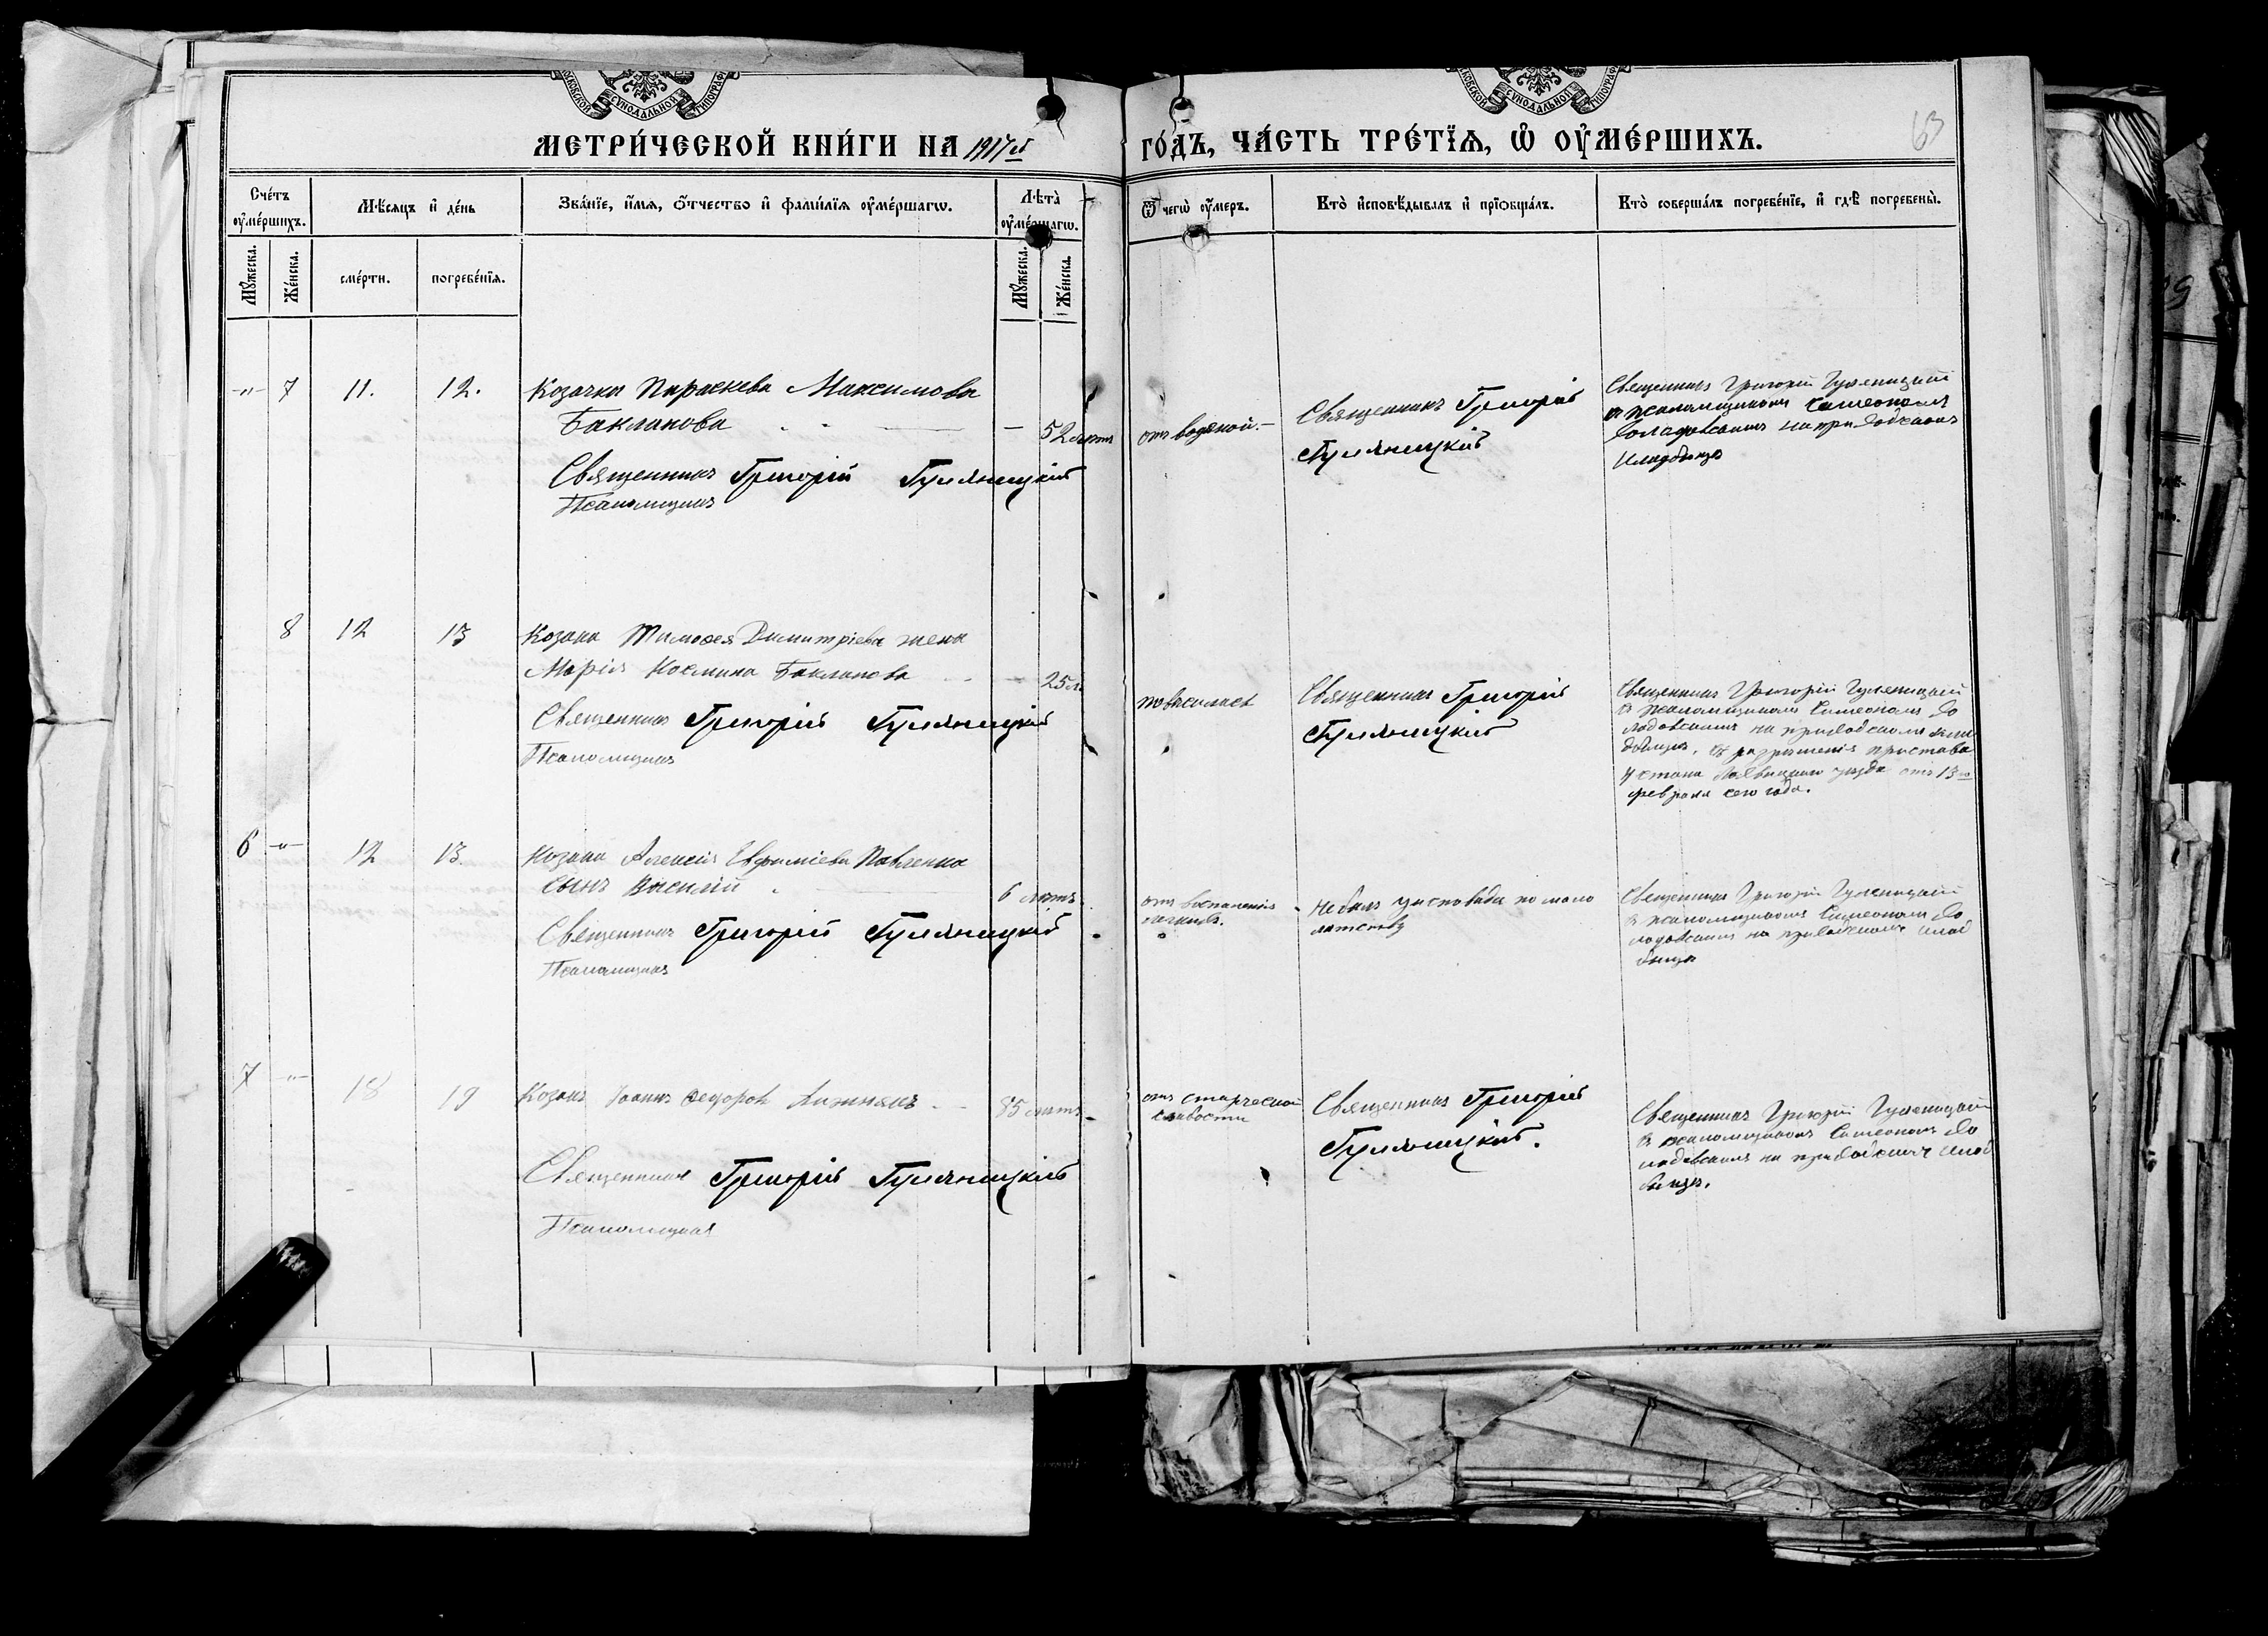 МЕТРИ́ЧЕСКОЙ КНИ́ГИ НА 1917й
ГО́ДЪ, ЧА́СТЬ ТРЕ́ТЇЯ, Ѽ ОУ҆МЕ́РШИХЪ.
63
Сче́тъ оу҆ме́ршихъ.
Мѣ́сяцъ и҆ де́нь
Зва́нїе, и҆́мя, ѻ҆́тчество и҆ фами́лїя оу҆ме́ршагѡ.
Лѣ́та̀ оу҆ме́ршагѡ.
Ѿ чегѡ̀ оу҆́меръ.
Кто̀ и҆сповѣ́дывалъ и҆ прїѡбща́лъ.
Кто̀ соверша́лъ погребе́нїе, и҆ гдѣ̀ погребены̀.
Мꙋ́жеска.
Же́нска.
сме́рти.
погребе́нїя.
Мꙋ́жеска.
Же́нска.
-"- 7 11. 12.
Козачка Параскева Максимова
Бакланова — 52 лѣтъ
Священникъ Григорій Гуляницкій
Псаломщикъ
отъ водяной.-
Священникъ Григорій
Гуляницкій
Священникъ Григорій Гуляницкій
съ псаломщикомъ Симеономъ
на приходскомъ
кладбищѣ
8 12 13
Козака Тимоѳея Димитріева жена
Марія Космина Бакланова — 25 л.
Священникъ Григорій Гуляницкій
Псаломщикъ
повѣсилась
Священникъ Григорій
Гуляницкій
Священникъ Григорій Гуляницкій
съ псаломщикомъ Симеономъ До
ладовскимъ на приходскомъ клад
бищѣ, съ разрѣшенія пристава
4 стана уѣзда отъ 13го
февраля сего года.
6 -"- 12 13.
Козака Алексія Евфиміева Павленка
сынъ Василій 6 лѣтъ
Священникъ Григорій Гуляницкій
Псаломщикъ
отъ воспаленія
легкихъ.
Не былъ у исповѣди по мало
лѣтству
Священникъ Григорій Гуляницкій
съ псаломщикомъ Симеономъ До
ладовскимъ на приходскомъ клад
бищѣ
7 -"- 18 19
Козакъ Іоаннъ Ѳеодоровъ 85 лѣтъ
Священникъ Григорій Гуляницкій
Псаломщикъ
отъ старческой
слабости
Священникъ Григорій
Гуляницкій.
Священникъ Григорій Гуляницкій
съ псаломщикомъ Симеономъ До
ладовскимъ на приходскомъ клад
бищѣ.